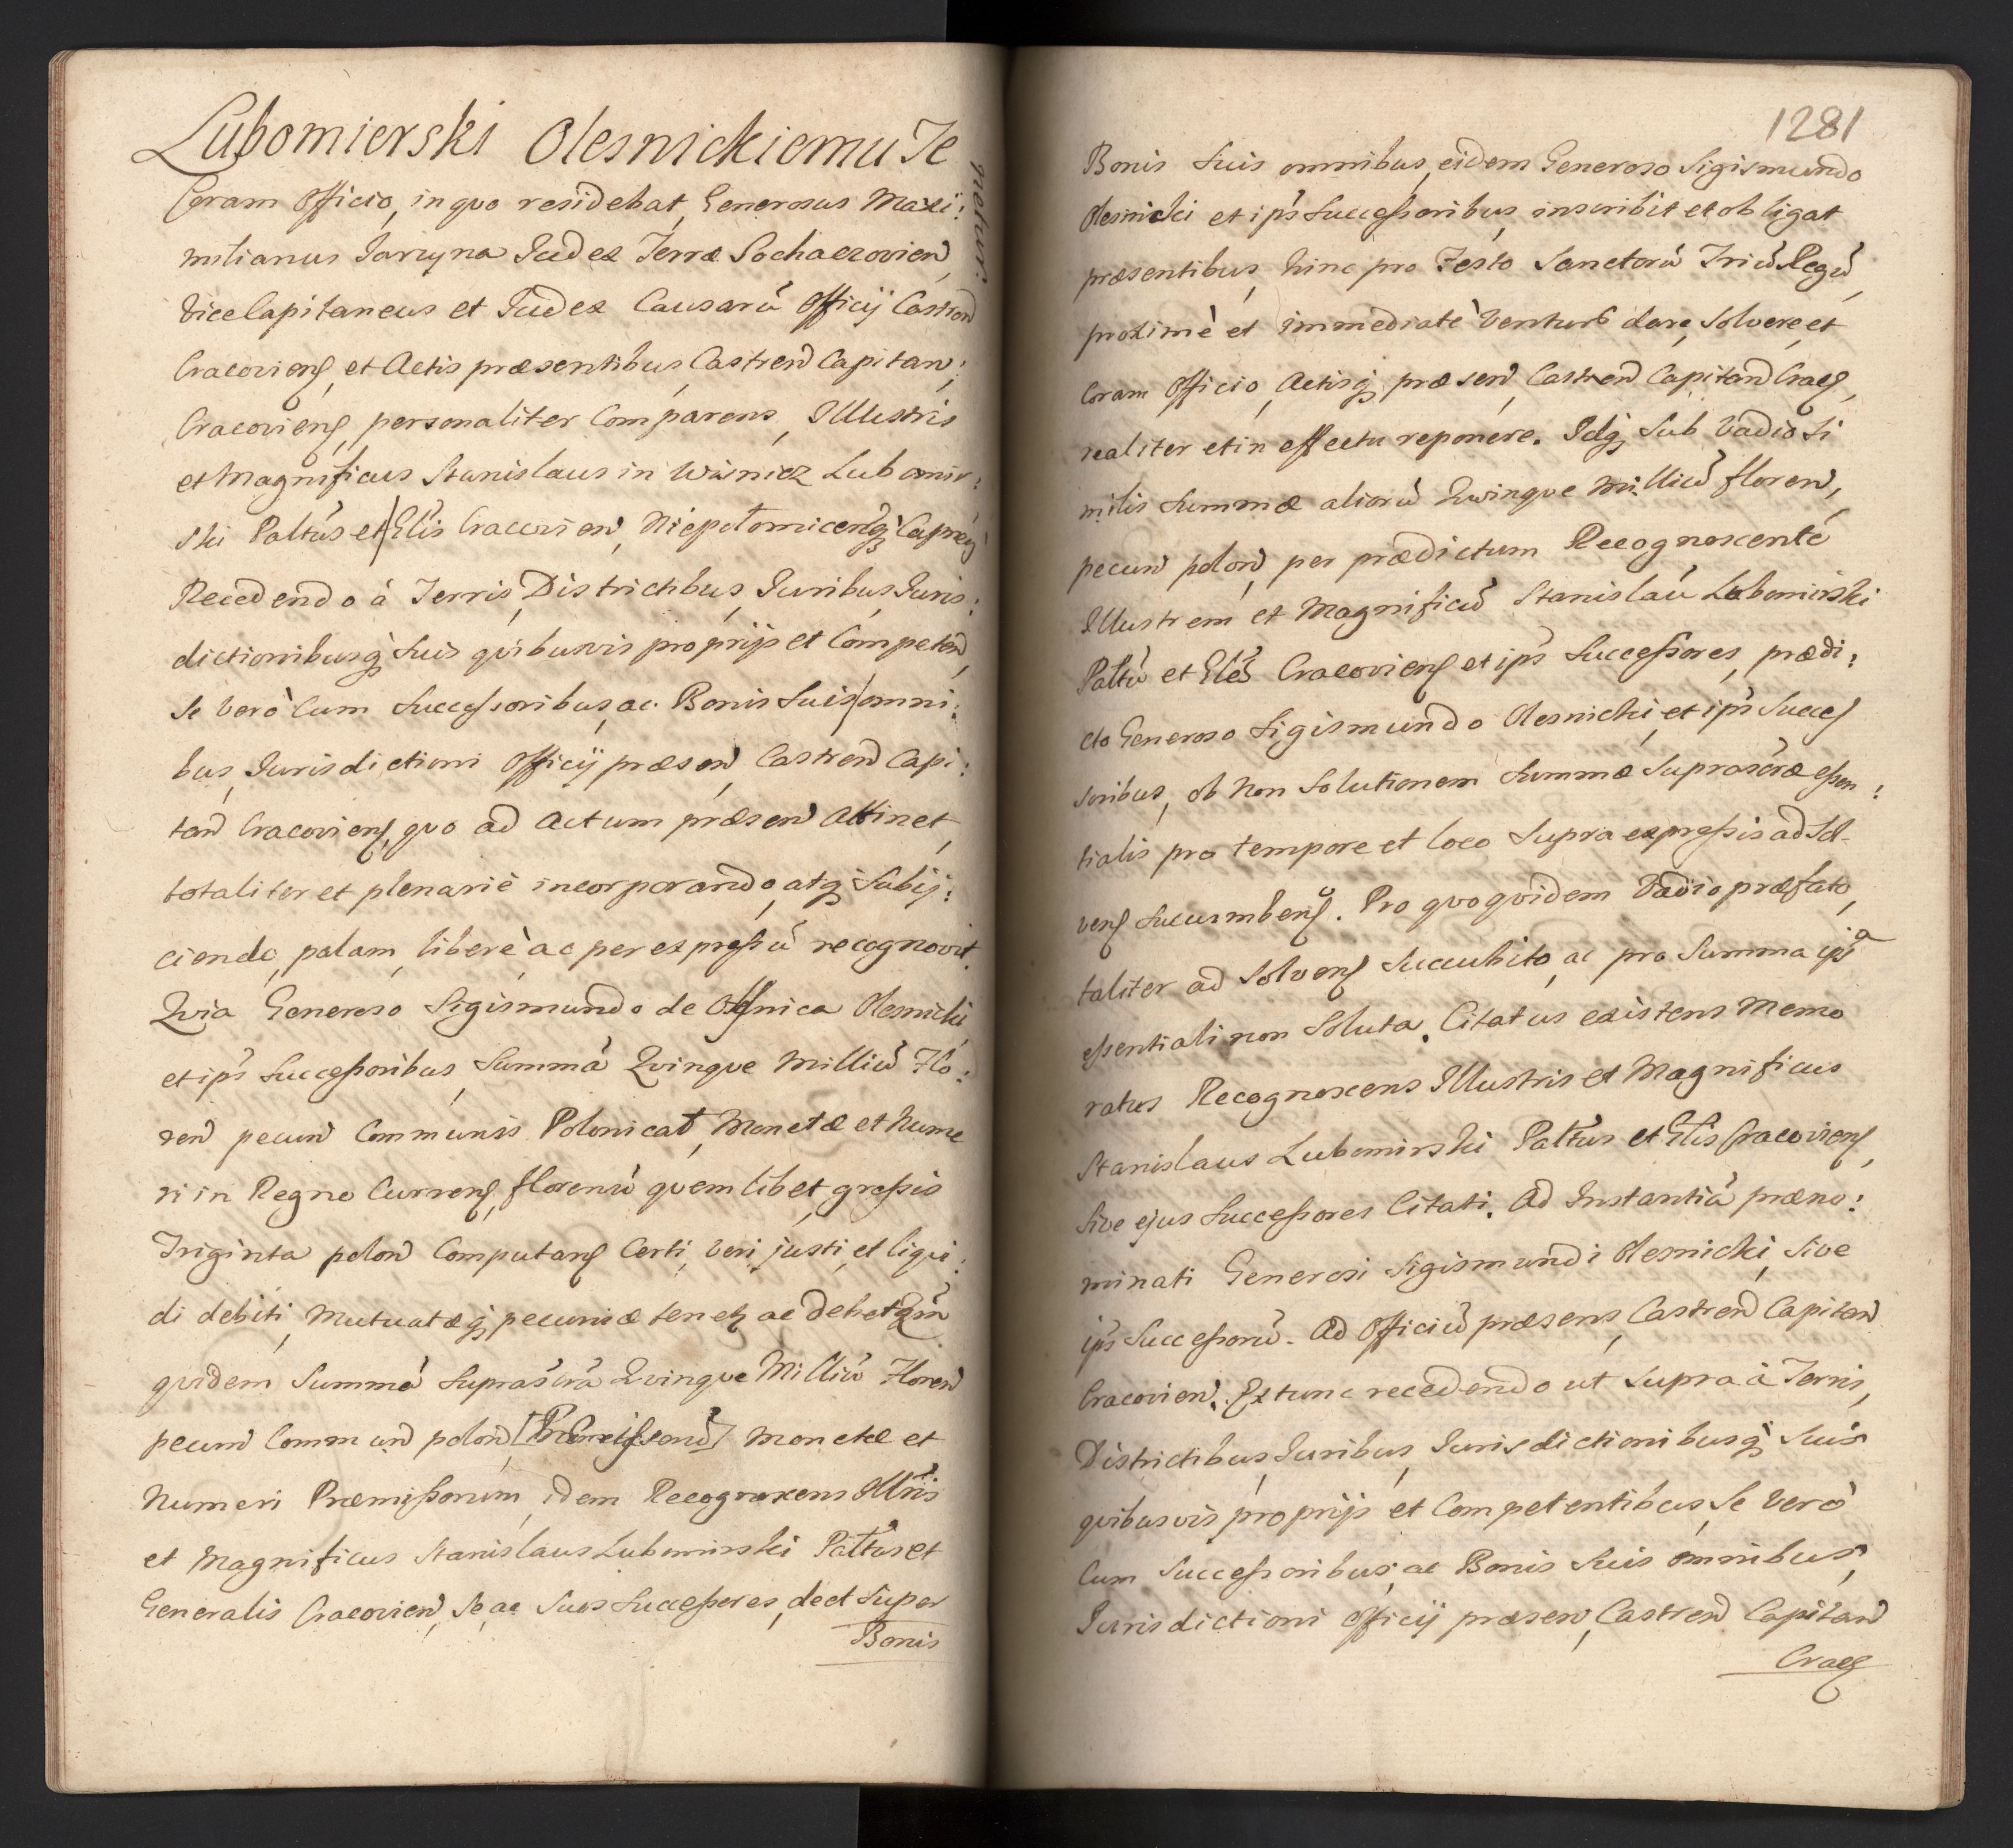 Lubomierski Olesnickiemu Te
netur.
Coram Officio, in quo residebat, Generosus Maxi:
milianus Jarzyna Judex Terræ Sochaczovien̄,
ViceCapitaneus et Judex Causarũ Officij Castren̄
Cracovienſ, et Actis præsentibus, Castren̄ Capitan̄:
Cracovienſ, personaliter Comparens, Illustris
et Magnificus Stanislaus in Wisnicz Lubomir:
ski Paltũs et Glis Cracovien̄, Niepolomicenqʒ
Recedendo à Terris, Districtibus, Juribus, Juris:
dictionibusqʒ Suis quibusvis proprijs et Competen̄,
Se verò Cum Successoribus, ac Bonis Suis omni:
bus, Jurisdictioni Officij præsen̄, Castren̄ Capi:
tan̄ Cracovienſ, quo ad Actum præsen̄ attinet,
totaliter et plenariè incorporando, atqʒ Subij:
ciendo, palam, liberè ac per expressũ recognovit.
Quia Generoso Sigismundo de Olesnica Olesnicki,
et ips̃ Successoribus, Summã Quinque Milliũ Flo:
ren̄ pecun̄ Communis Polonicał, Monetæ et Nume
ri in Regno Currenſ, florenũ quemlibet, grossis
Triginta polon̄ Computanſ Certi, veri, justi, et liqui:
di debiti, Mutuatæqʒ pecuniæ tenetʒ ac debet Qm̃
quidem Summã Suprasc̃rã Quinque Milliũ Floren̄
pecun̄ Commun̄ polon̄ Monetæ et
Numeri Præmissorum, idem Recognoscens Illris̃
et Magnificus Stanislaus Lubomirski Paltũs et
Generalis Cracovien̄, Se, ac Suos Successores, de et Super
Bonis
1281
Bonis Suis omnibus, eidem Generoso Sigismundo
Olesnicki et ips̃ Successoribus, inscribit et obligat
præsentibus, hinc pro Festo Sanctorũ Triũ Regũ,
proximè et immediatè Venturo dare, Solvere, et
Coram Officio, Actisqʒ præsen̄, Castren̄ Capitan̄ Cracſ,
realiter et in effectu reponere. Idqʒ Sub Vadio Si
milis Summæ aliorũ Quinque Milliũ floren̄,
pecun̄ polon̄, per prædictum Recognoscentẽ
Illustrem et Magnificũ Stanislaũ Lubomirski
Paltũ et Glẽ Cracovienſ et ips̃ Successores, prædi:
cto Generoso Sigismundo Olesnicki, et ips̃ Succeſ
soribus, ob Non Solutionem Summæ Suprasc̃ræ essen:
tialis pro tempore et loco Supra expressis ad Sol-
venſ Sucumbenſ. Pro quo quidem Vadio præfato,
taliter ad Solvenſ Succubito, ac pro Summa ips̃a
essentiali non Soluta. Citatus existens Memo
ratus Recognoscens Illustris et Magnificus
Stanislaus Lubomirski Paltũs et Glis Cracovienſ,
Sive ejus Successores Citati. Ad Instantiã præno:
minati Generosi Sigismundi Olesnicki, Sive
ips̃ Successorũ. Ad Officiũ præsens, Castren̄ Capitan̄
Cracovien̄. Extunc recedendo ut Supra à Terris,
Districtibus, Juribus, Jurisdictionibusqʒ Suis
quibusvis proprijs et Competentibus, Se verò
Cum Successoribus, ac Bonis Suis omnibus,
Jurisdictioni Officij præsen̄, Castren̄ Capitan̄
Cracſ